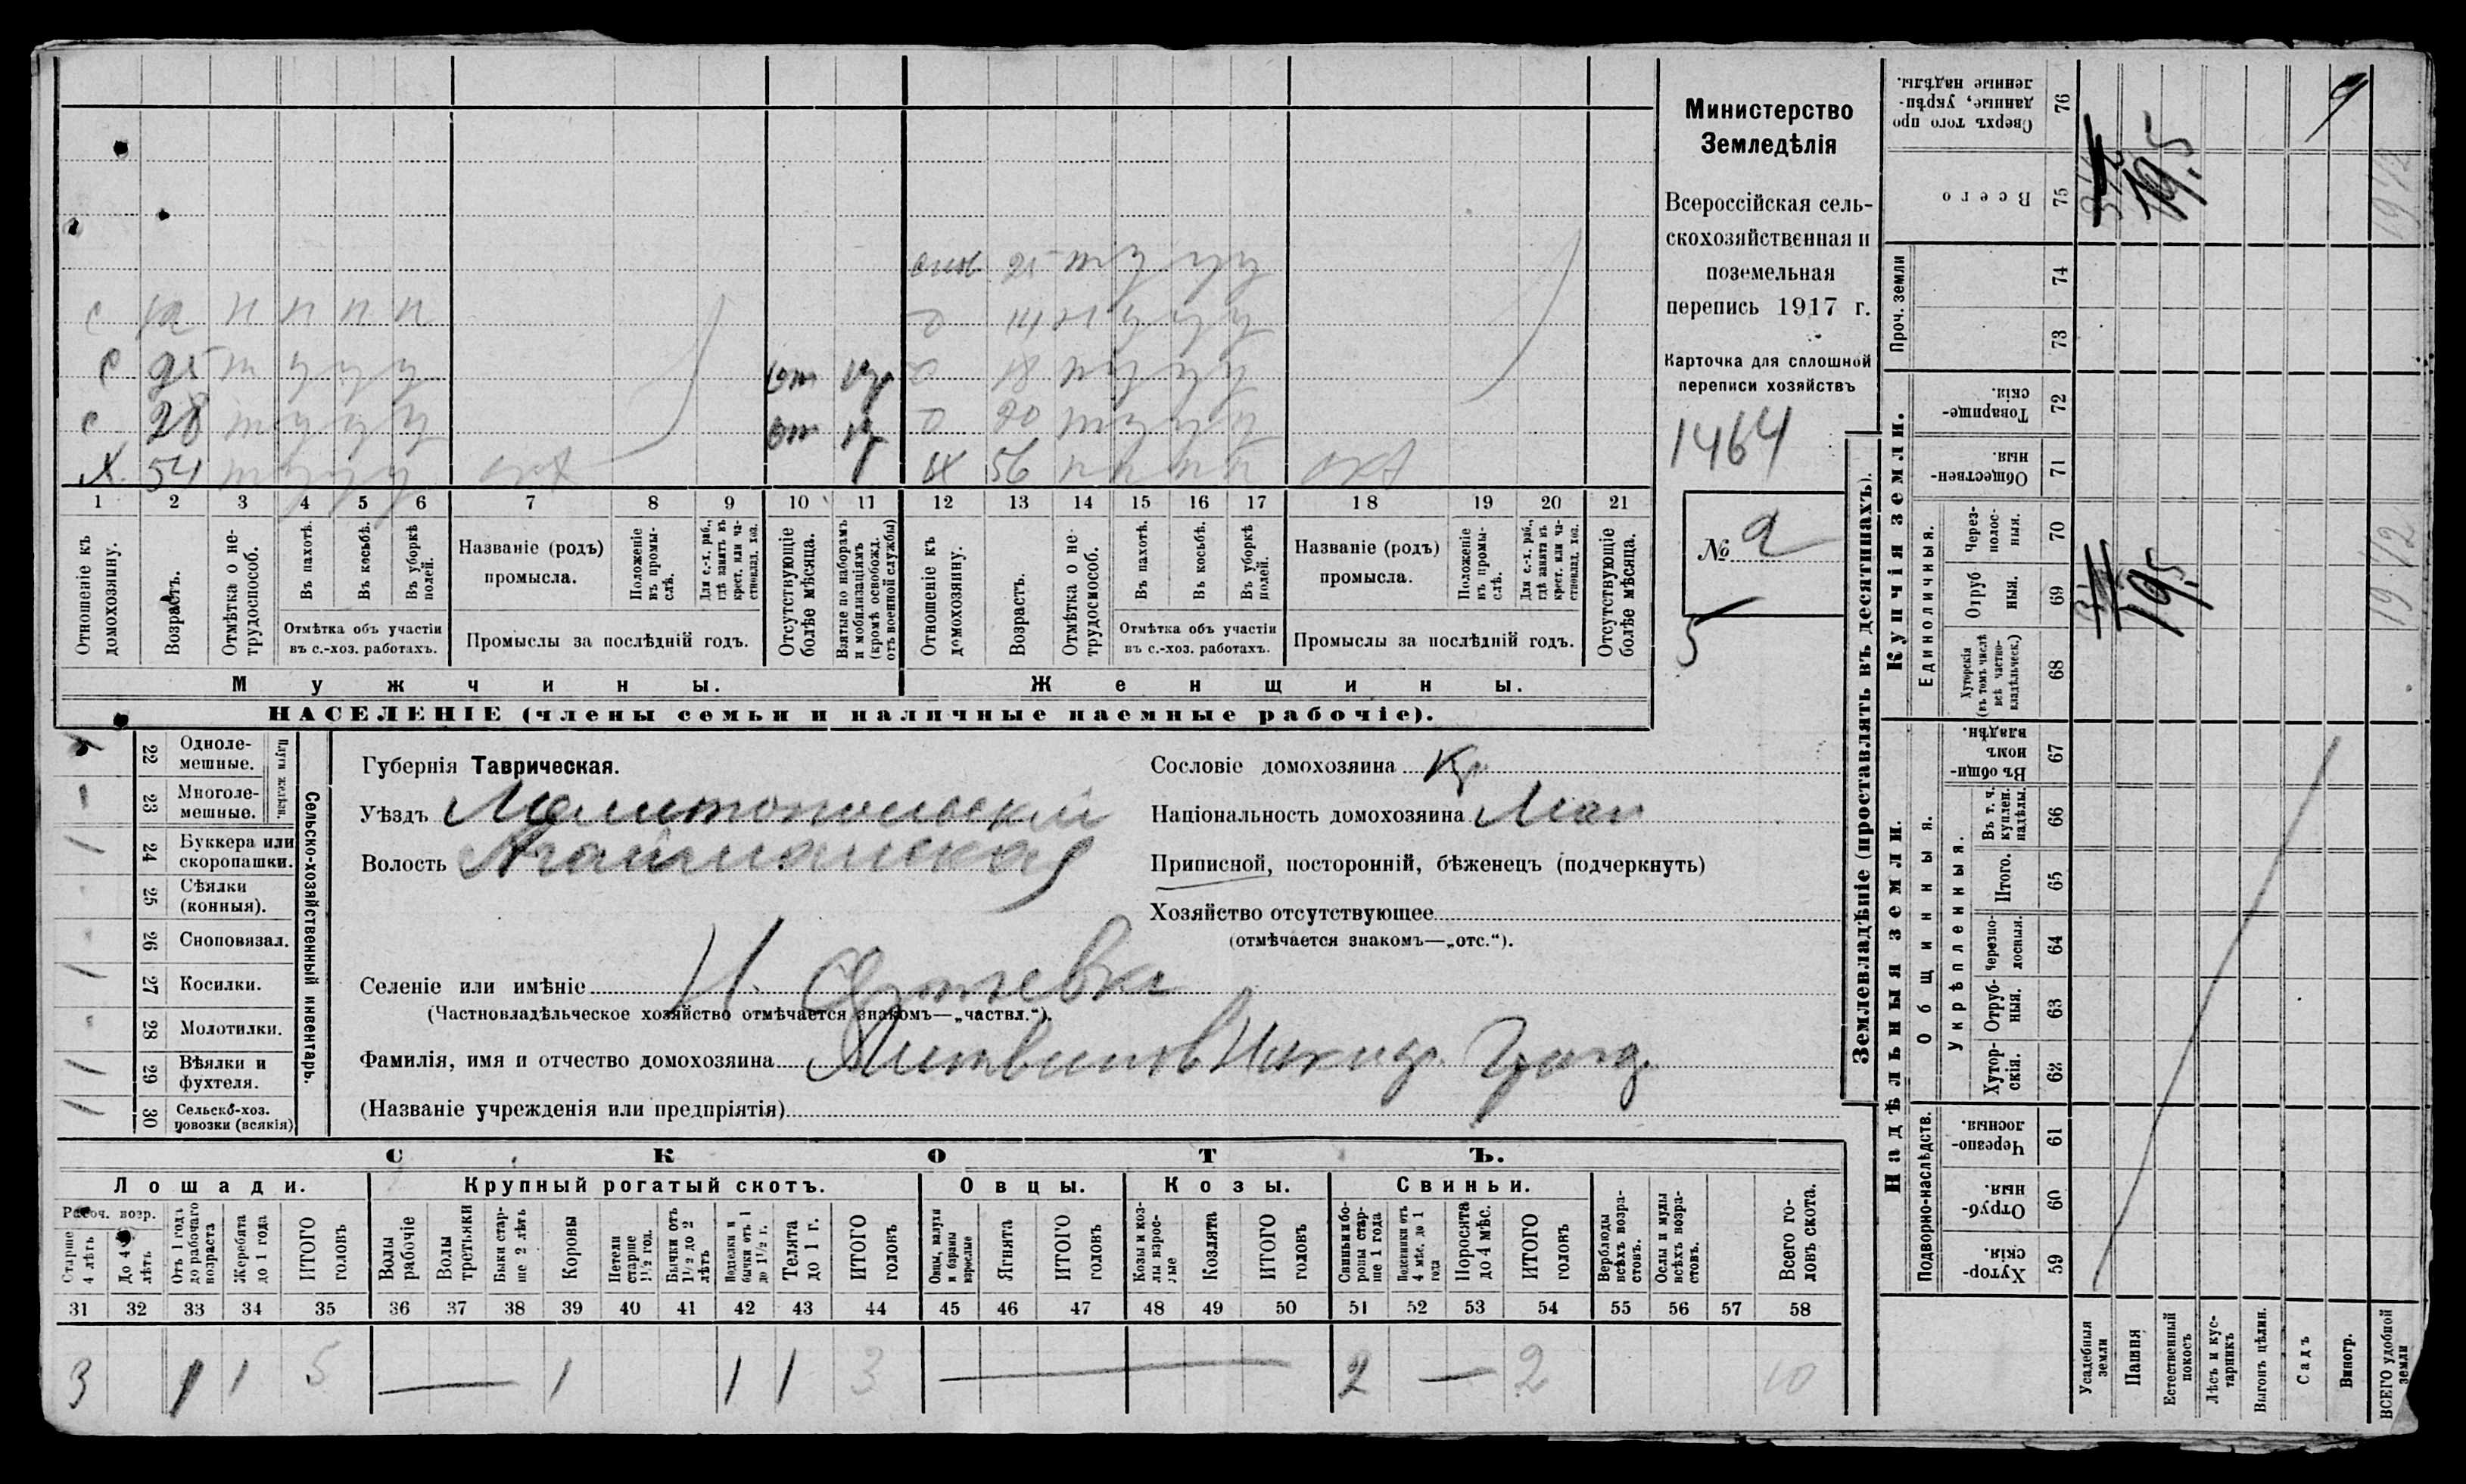 Министерство
Земледѣлія
Всероссійская сель-
скохозяйственная и
поземельная
перепись 1917 г.
Карточка для сплошной
переписи хозяйствъ
1464
№ 2
5
1 2 3 4 5 6 7 8 9 10 11 12 13 14 15 16 17 18 19 20 21
Отношеніе къ домохозяину.
Возрастъ.
Отмѣтка о не-трудоспособ.
Въ пахотѣ.
Въ косьбѣ.
Въ уборкѣ полей.
Отмѣтка объ участіи
въ с.-хоз. работахъ.
Названіе (родъ)
промысла.
Положеніе въ промы-слѣ.
Для с.-х. раб., гдѣ занятъ въ крест. или ча-стновлад. хоз.
Промыслы за послѣдній годъ.
Отсутствующіе болѣе мѣсяца.
Взятые по наборамъ и мобилизаціямъ (кромѣ освобожд. отъ военной службы)
Отношеніе къ домохозяину.
Возрастъ.
Отмѣтка о не-трудоспособ.
Въ пахотѣ.
Въ косьбѣ.
Въ уборкѣ полей.
Отмѣтка объ участіи
въ с.-хоз. работахъ.
Названіе (родъ)
промысла.
Положеніе въ промы-слѣ.
Для с.-х. раб., гдѣ занята въ крест. или ча-стновлад. хоз.
Промыслы за послѣдній годъ.
Отсутствующіе болѣе мѣсяца.
с 12 н н н н
с 25
с 28
х 54
18
20
56
Мужчины.
Женщины.
НАСЕЛЕНІЕ (члены семьи и наличные наемные рабочіе).
Сельско-хозяйственный инвентарь.
Плуги желѣзн.
22 Одноле-мешные.
23 Многоле-мешные.
24 Буккера или скоропашки.
25 Сѣялки (конныя).
26 Сноповязал.
27 Косилки.
28 Молотилки.
29 Вѣялки и фухтеля.
30 Сельско-хоз. повозки (всякія)
Губернія Таврическая.
Уѣздъ Мелитопольскій
Волость Агайманская
Сословіе домохозяина Кр
Національность домохозяина Мал
Приписной, посторонній, бѣженецъ (подчеркнуть)
Хозяйство отсутствующее
(отмѣчается знакомъ—„отс.“).
Селеніе или имѣніе Н.
(Частновладѣльческое хозяйство отмѣчается знакомъ—„частвл.“).
Фамилія, имя и отчество домохозяина Литвинов Никид.
(Названіе учрежденія или предпріятія)
СКОТЪ.
Лошади. Крупный рогатый скотъ. Овцы. Козы. Свиньи.
Рабоч. возр.
Старше 4 лѣтъ
До 4 лѣтъ
Отъ 1 года до рабочаго возраста
Жеребята до 1 года
ИТОГО головъ
Волы рабочіе
Волы третьяки
Быки стар-ше 2 лѣтъ
Коровы
Нетели старше 1½ год.
Бычки отъ 1½ до 2 лѣтъ
Телки и бычки отъ 1 до 1½ г.
Телята до 1 г.
ИТОГО головъ
Овцы, валухи и бараны взрослые
Ягнята
ИТОГО головъ
Козы и коз-лы взрос-лые
Козлята
ИТОГО головъ
Свиньи и бо-ровы стар-ше 1 года
Подсвинки отъ 4 мѣс. до 1 года
Поросята до 4 мѣс.
ИТОГО головъ
Верблюды всѣхъ возра-стовъ.
Ослы и мулы всѣхъ возра-стовъ.
Всего го-ловъ скота.
31 32 33 34 35 36 37 38 39 40 41 42 43 44 45 46 47 48 49 50 51 52 53 54 55 56 57 58
3 1 1 5 — 1 1 1 3 — 2 — 2 10
Землевладѣніе (проставлять въ десятинахъ).
Купчія земли.
Проч. земли
Единоличныя.
Сверхъ того про-данные, укрѣп-ленные надѣлы. 76
Всего 75
74
73
Товарище-скія. 72
Обществен-ныя. 71
Через-полос-ныя. 70
Отруб-ныя. 69
Хуторскія (въ томъ числѣ всѣ частно-владѣльческ.) 68
Надѣльныя земли.
Общинныя.
Укрѣпленныя.
Въ общи-номъ владѣн. 67
Въ т. ч. куплен. надѣлы. 66
Итого. 65
Черезпо-лосныя. 64
Отруб-ныя. 63
Хутор-скія. 62
Подворно-наслѣдств.
Черезпо-лосныя. 61
Отруб-ныя. 60
Хутор-скія. 59
Усадебныя земли
Пашня
Естественный покосъ
Лѣсъ и кус-тарникъ
Выгонъ цѣлин.
Садъ
Виногр.
ВСЕГО удобной земли
19,5
19,5
19 1/2
19 1/2